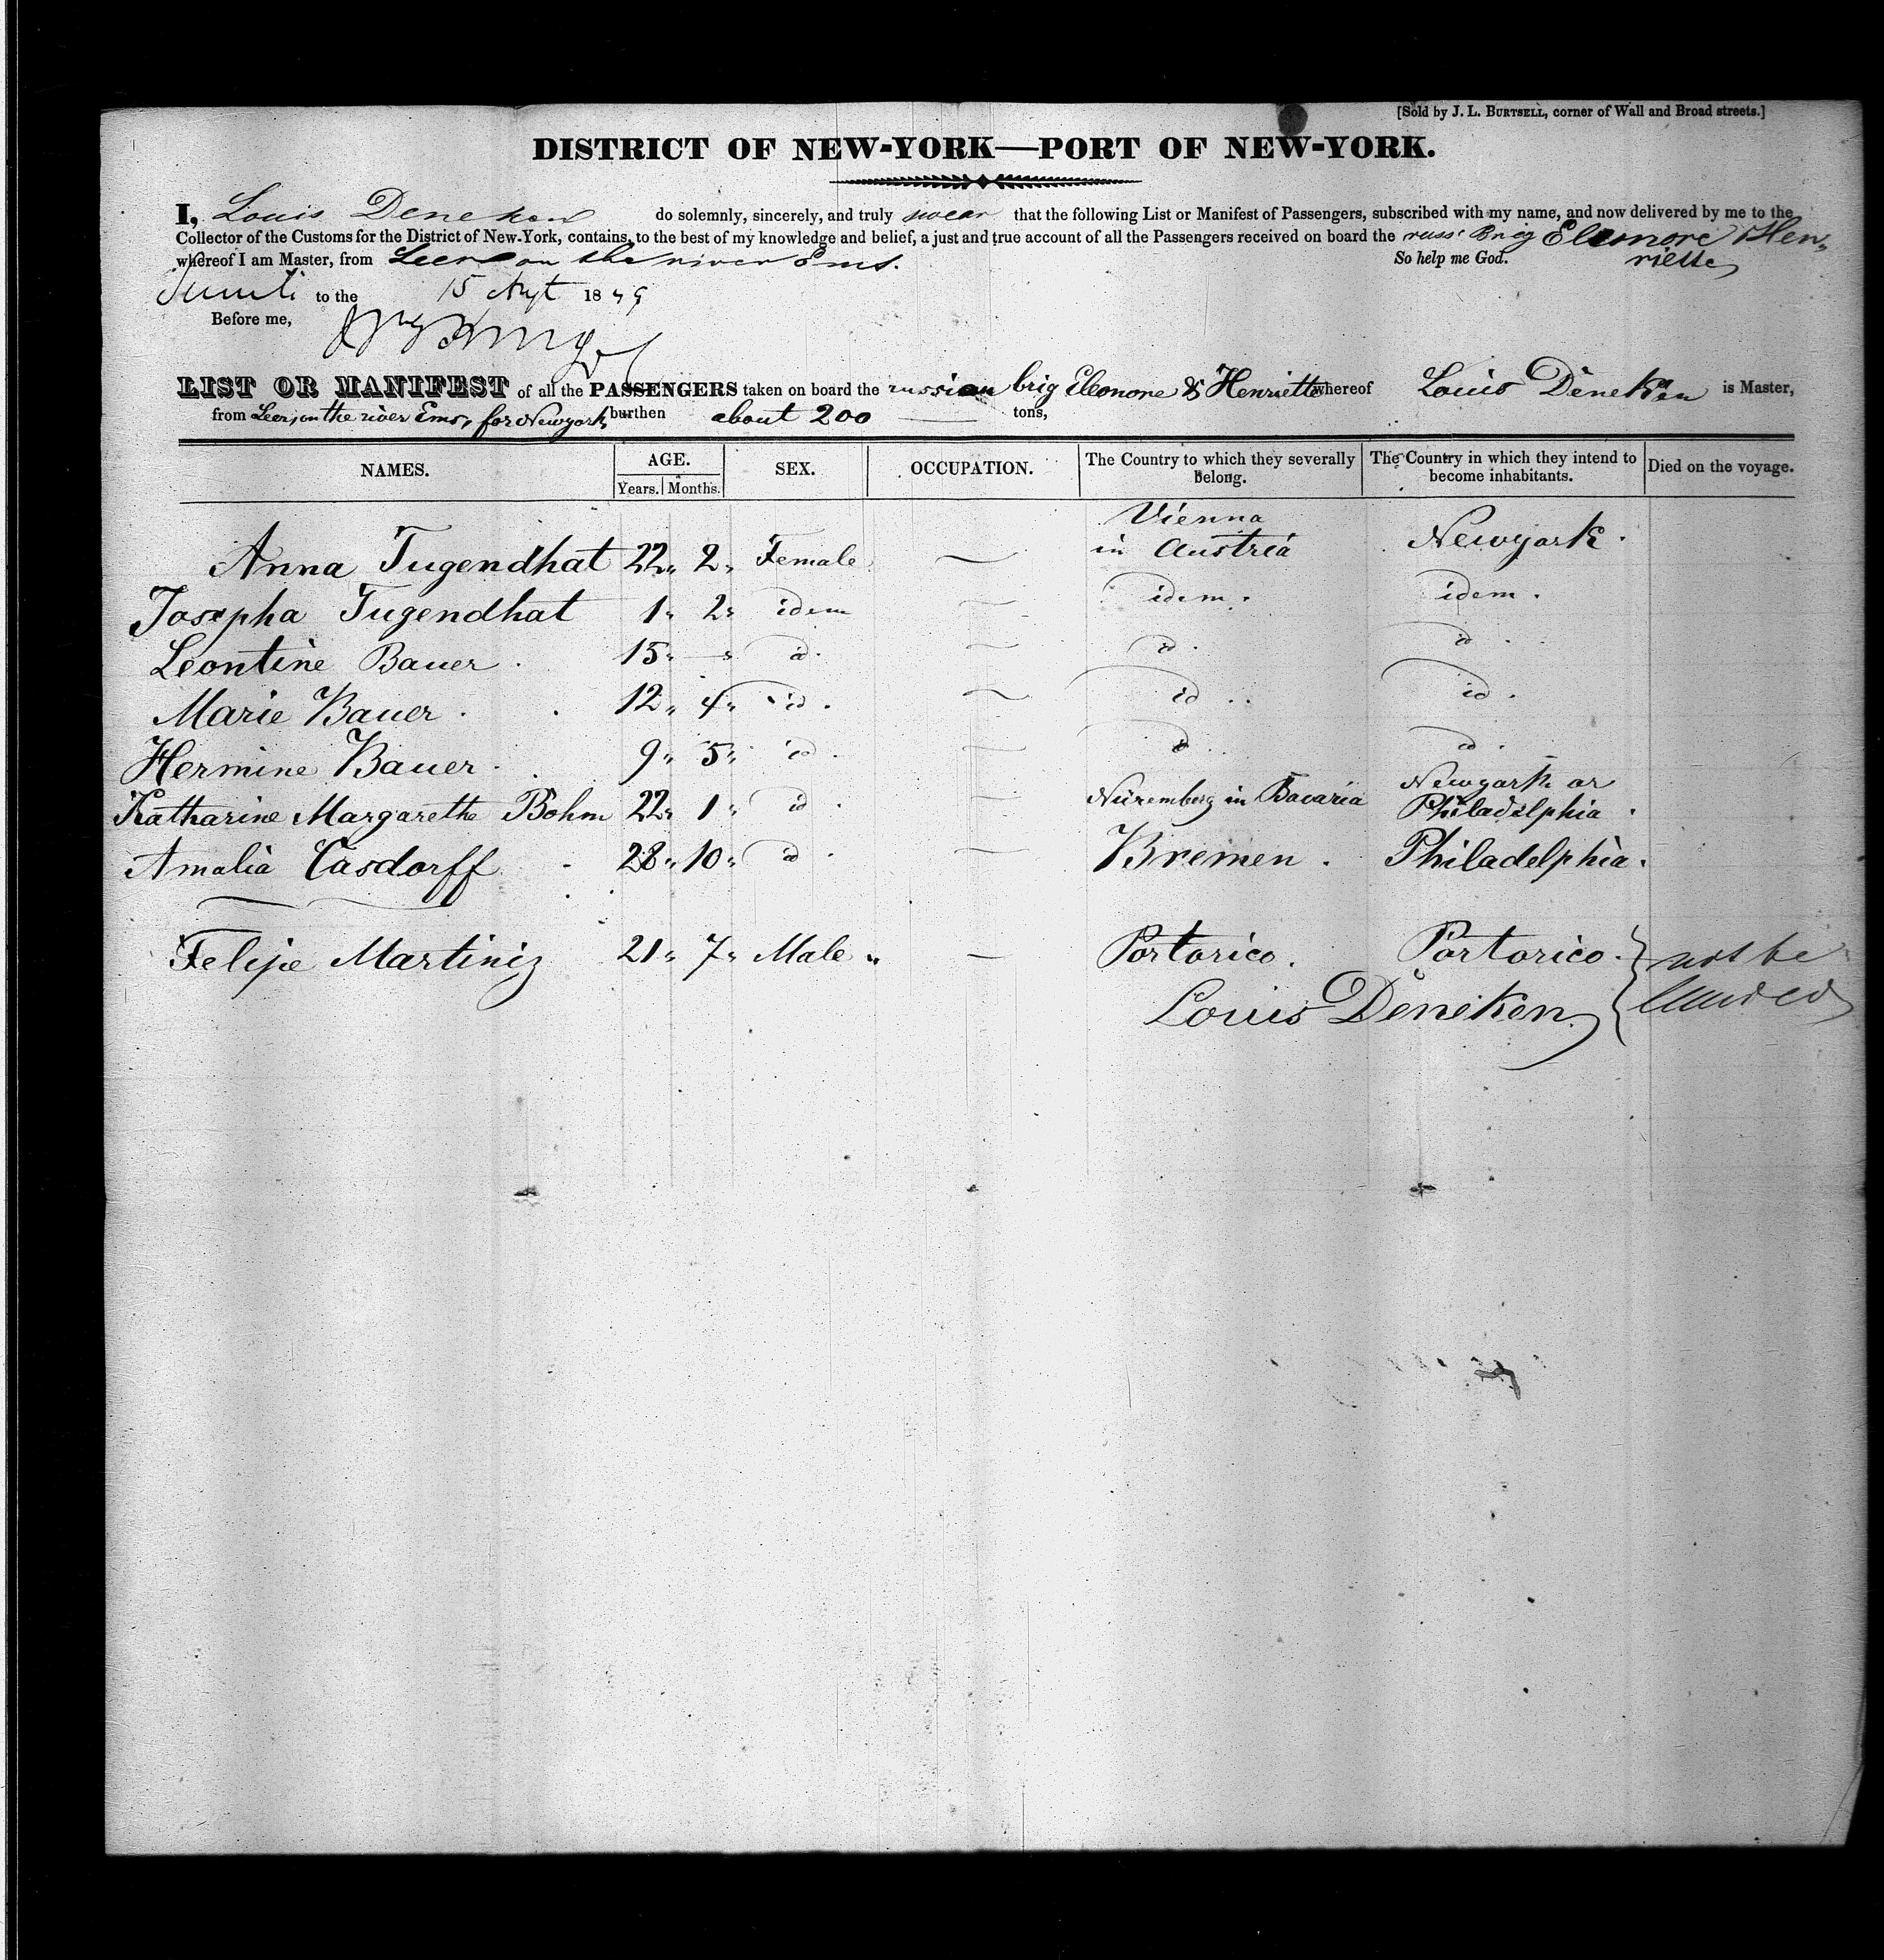 [Sold by J. L. BURTSELL, corner of Wall and Broad streets.]
DISTRICT OF NEW-YORK—PORT OF NEW-YORK.
I, Louis Deneken do solemnly, sincerely, and truly swear that the following List or Manifest of Passengers, subscribed with my name, and now delivered by me to the
Collector of the Customs for the District of New-York, contains, to the best of my knowledge and belief, a just and true account of all the Passengers received on board the russ. Brig Eleonore & Hen-
whereof I am Master, from Leer on the river Ems. So help me God. riette
to the 15 1849
Before me,
LIST OR MANIFEST of all the PASSENGERS taken on board the russian brig Eleonore & Henriette whereof Louis Deneken is Master,
from Leer, on the river Ems, for Newyork, burthen about 200 tons,
NAMES. AGE. SEX. OCCUPATION. The Country to which they severally belong. The Country in which they intend to become inhabitants. Died on the voyage.
Years. Months.
Anna Tugendhat 22 " 2 " Female — Vienna in Austria Newyork.
Josepha Tugendhat 1 " 2 " idem — idem. idem.
Leontine Bauer 15 " — " id. — id. id.
Marie Bauer. 12 " 4 " id. — id.. id.
Hermine Bauer. 9 " 5 " id. — id.. id.
Katharine Margarethe Bohm 22 " 1 " id. — Nüremberg in Bavaria Newyork or Philadelphia.
Amalia Casdorff 28 " 10 " id. — Bremen. Philadelphia.
Felipe Martiniz 21 " 7 " Male " — Portorico. Portorico. not be
Louis Deneken landed